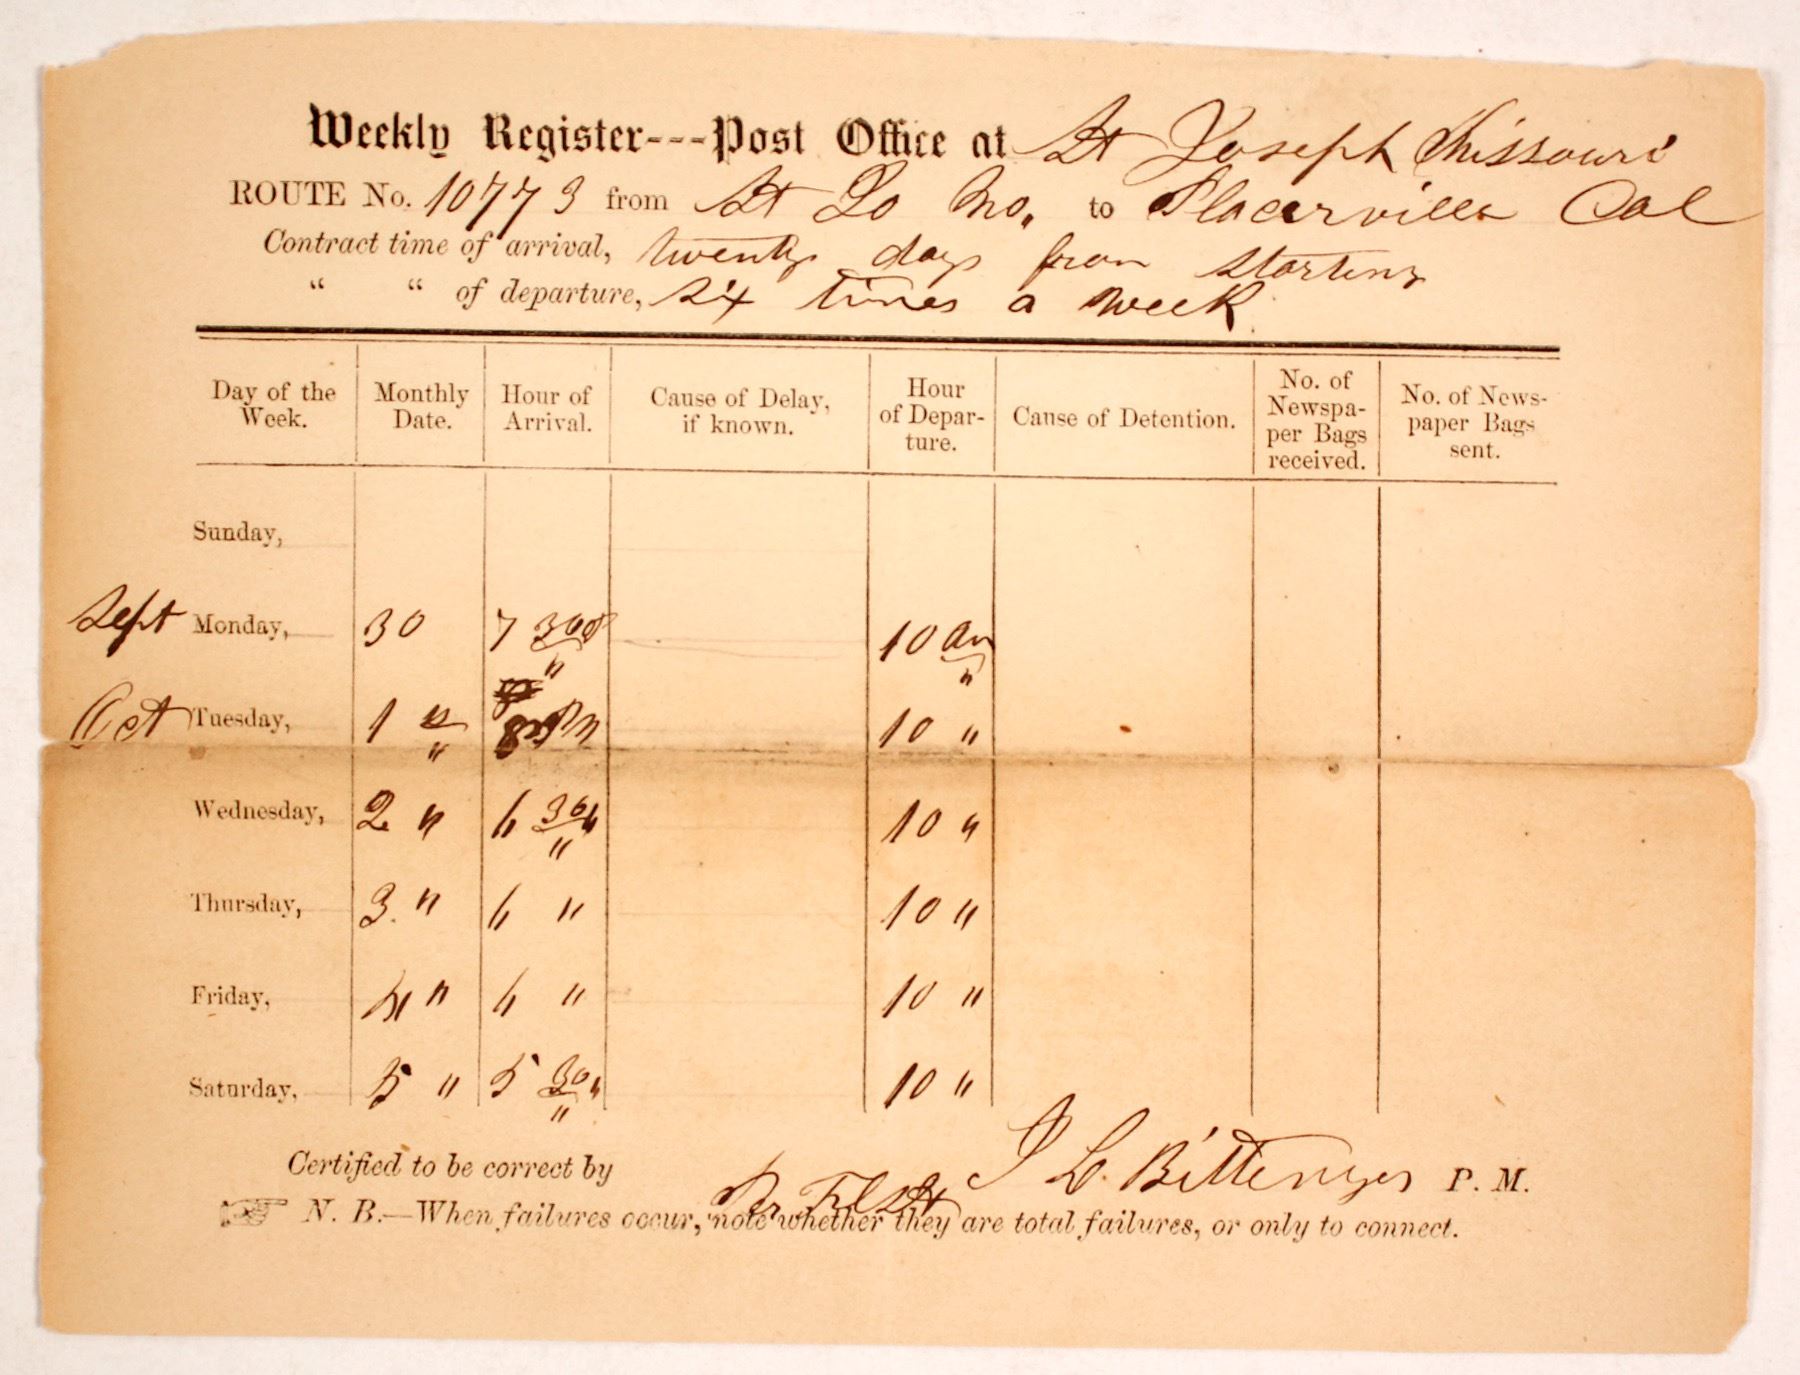 Weekly Register---Post Office at St Joseph Missouri
ROUTE No. 10773 from St Jo Mo. to Placerville Cal
Contract time of arrival, twenty days from starting
“ “ of departure, six times a week
Day of the Week. Monthly Date. Hour of Arrival. Cause of Delay, if known. Hour of Departure. Cause of Detention. No. of Newspaper Bags received. No. of Newspaper Bags sent.
Sunday,
Sept Monday, 30 7 30 10 am
Oct Tuesday, 1 " 8 10 "
Wednesday, 2 " 6 30 " 10 "
Thursday, 3. " 6 " 10 "
Friday, 4 " 6 " 10 "
Saturday, 5 " 5 30 " 10 "
Certified to be correct by J L. Bittenger P. M.
Pr
☞ N. B.—When failures occur, note whether they are total failures, or only to connect.